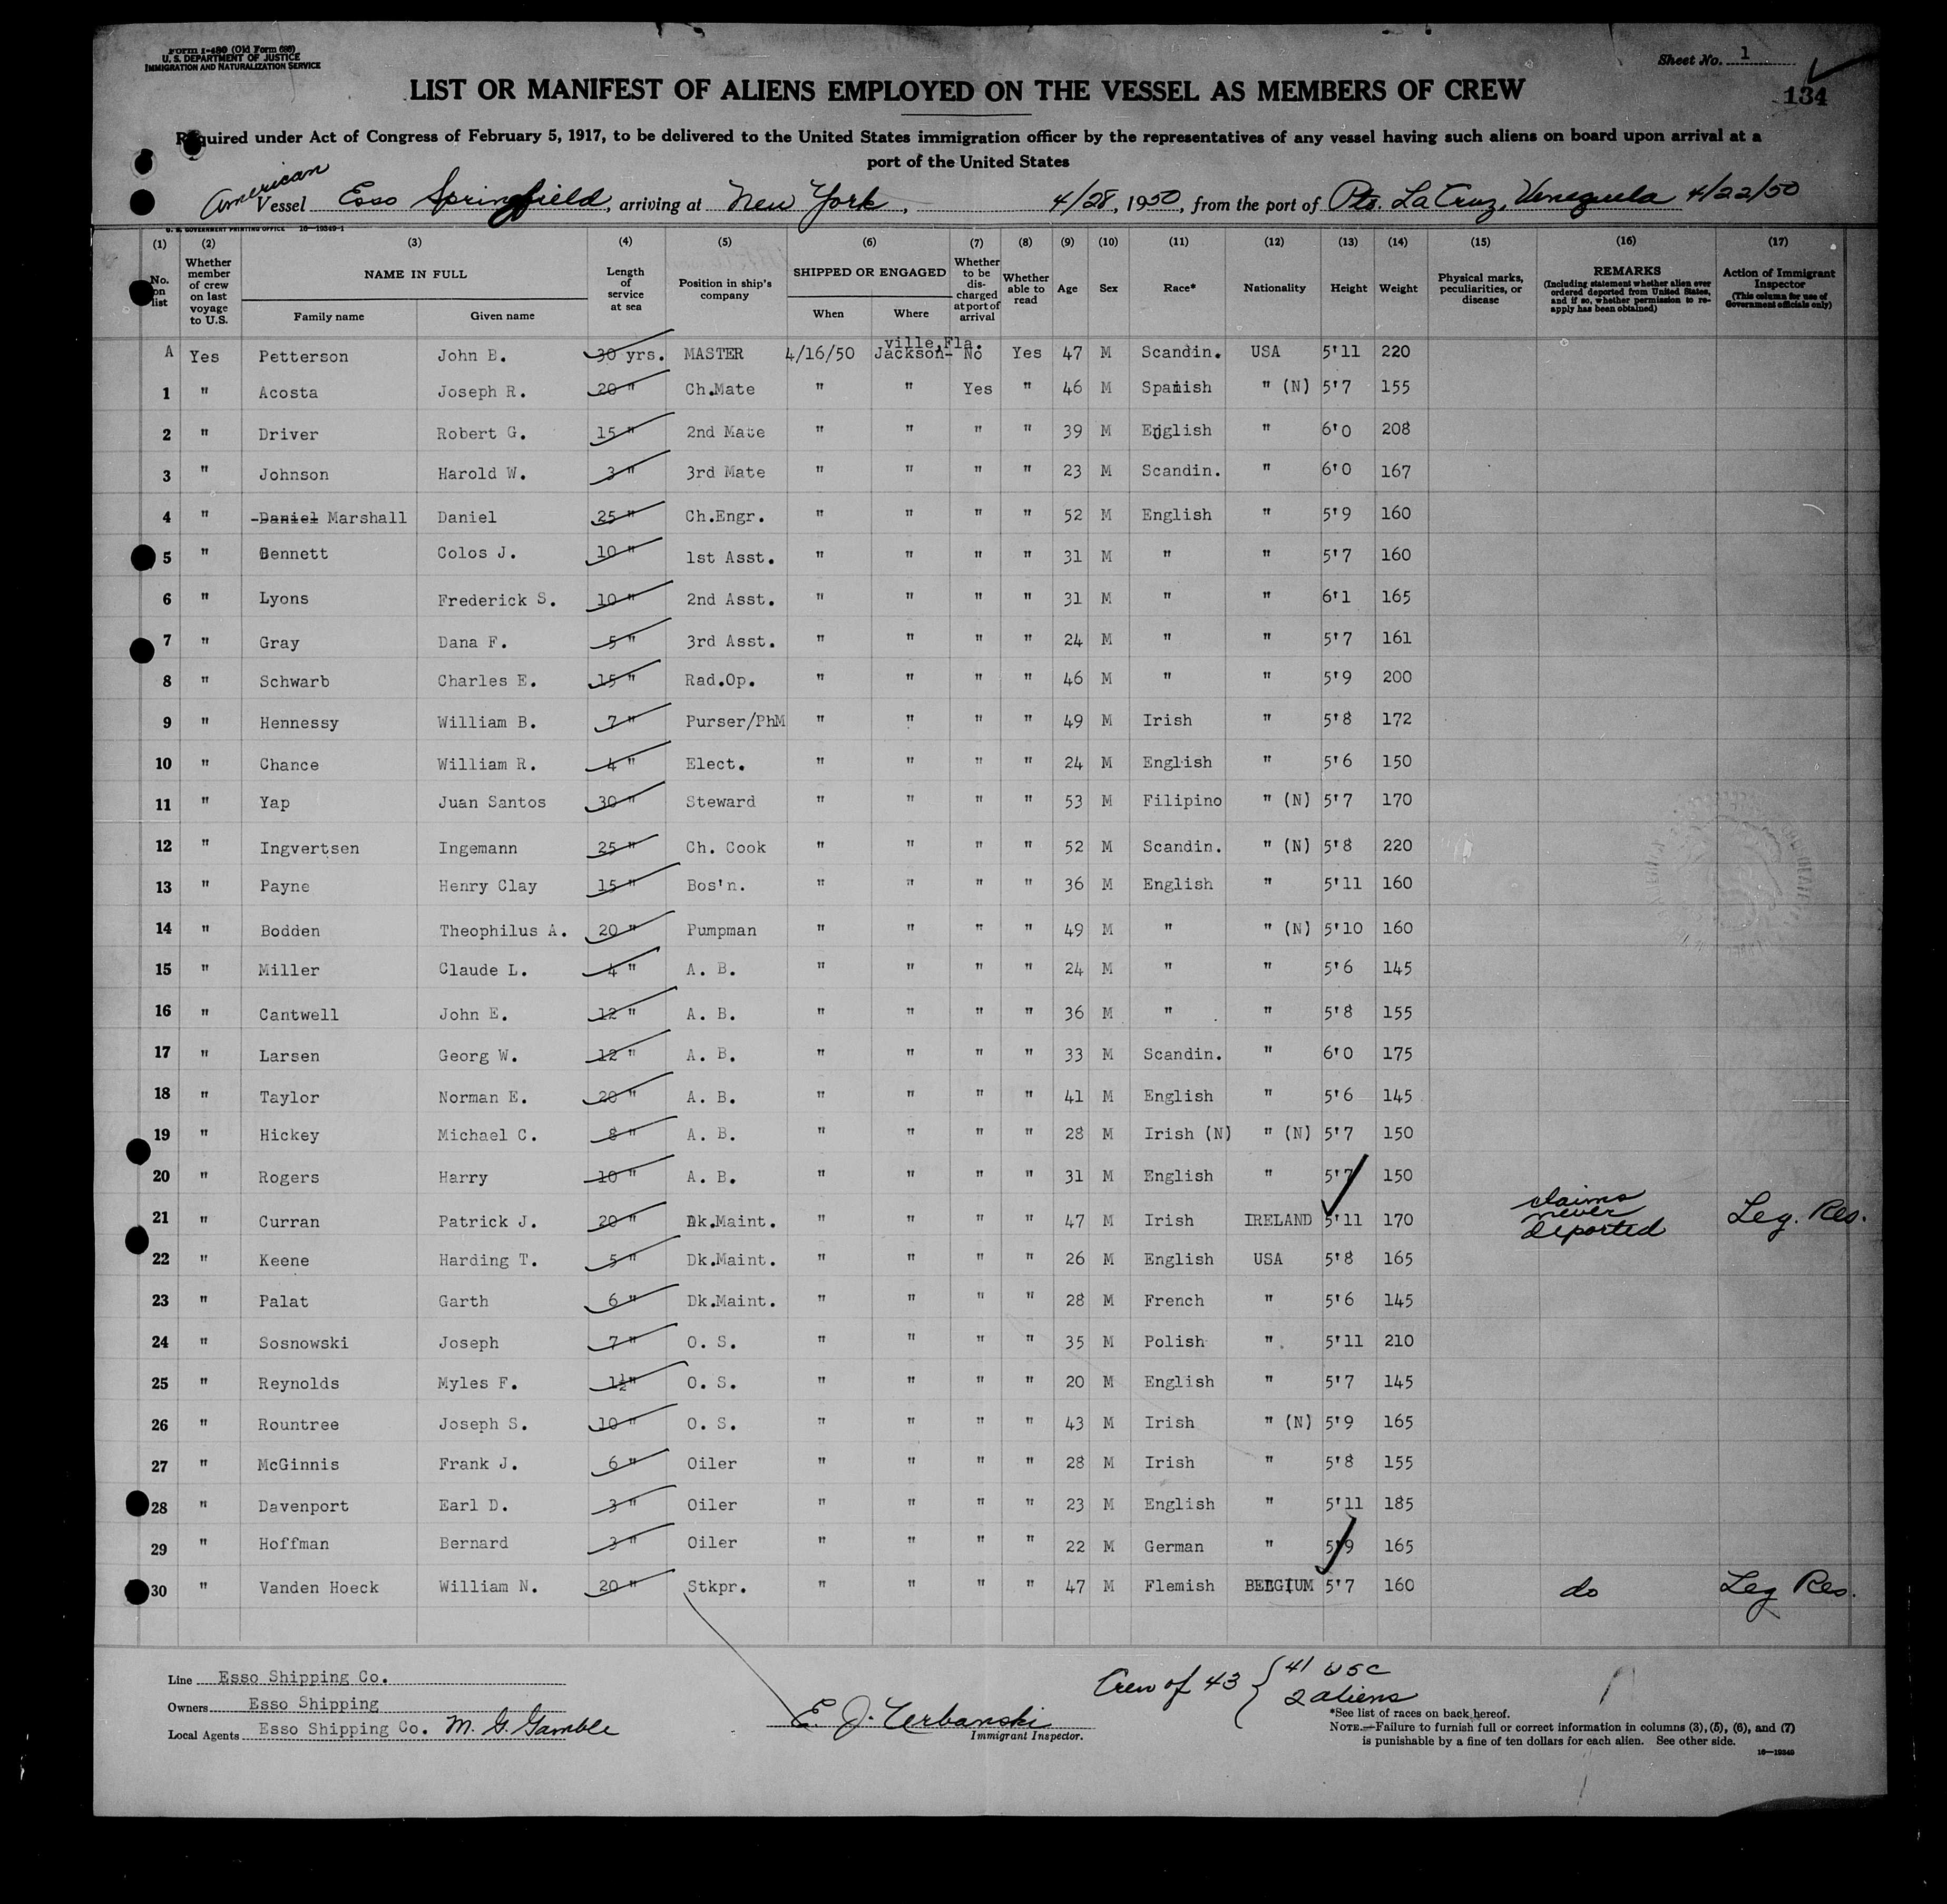 Form I-480 (Old Form 686)
U. S. DEPARTMENT OF JUSTICE
IMMIGRATION AND NATURALIZATION SERVICE
Sheet No. 1
134
LIST OR MANIFEST OF ALIENS EMPLOYED ON THE VESSEL AS MEMBERS OF CREW
Required under Act of Congress of February 5, 1917, to be delivered to the United States immigration officer by the representatives of any vessel having such aliens on board upon arrival at a
port of the United States
American
Vessel Esso Springfield, arriving at New York, 4/28, 1950, from the port of Pto. La Cruz, Venezuela 4/22/50
U. S. GOVERNMENT PRINTING OFFICE 16-19349-1
(1) (2) (3) (4) (5) (6) (7) (8) (9) (10) (11) (12) (13) (14) (15) (16) (17)
No. on list
Whether member of crew on last voyage to U.S.
NAME IN FULL
Family name
Given name
Length of service at sea
Position in ship's company
SHIPPED OR ENGAGED
When
Where
Whether to be discharged at port of arrival
Whether able to read
Age
Sex
Race*
Nationality
Height
Weight
Physical marks, peculiarities, or disease
REMARKS
(Including statement whether alien ever ordered deported from United States, and if so, whether permission to re-apply has been obtained)
Action of Immigrant Inspector
(This column for use of Government officials only)
ville,Fla.
A Yes Petterson John B. 30 yrs. MASTER 4/16/50 Jackson- No Yes 47 M Scandin. USA 5'11 220
1 " Acosta Joseph R. 20 " Ch.Mate " " Yes " 46 M Spanish " (N) 5'7 155
2 " Driver Robert G. 15 " 2nd Mate " " " " 39 M English " 6'0 208
3 " Johnson Harold W. 3 " 3rd Mate " " " " 23 M Scandin. " 6'0 167
4 " -Daniel Marshall Daniel 25 " Ch.Engr. " " " " 52 M English " 5'9 160
5 " Bennett Colos J. 10 " 1st Asst. " " " " 31 M " " 5'7 160
6 " Lyons Frederick S. 10 " 2nd Asst. " " " " 31 M " " 6'1 165
7 " Gray Dana F. 5 " 3rd Asst. " " " " 24 M " " 5'7 161
8 " Schwarb Charles E. 15 " Rad.Op. " " " " 46 M " " 5'9 200
9 " Hennessy William B. 7 " Purser/PhM " " " " 49 M Irish " 5'8 172
10 " Chance William R. 4 " Elect. " " " " 24 M English " 5'6 150
11 " Yap Juan Santos 30 " Steward " " " " 53 M Filipino " (N) 5'7 170
12 " Ingvertsen Ingemann 25 " Ch. Cook " " " " 52 M Scandin. " (N) 5'8 220
13 " Payne Henry Clay 15 " Bos'n. " " " " 36 M English " 5'11 160
14 " Bodden Theophilus A. 20 " Pumpman " " " " 49 M " " (N) 5'10 160
15 " Miller Claude L. 4 " A. B. " " " " 24 M " " 5'6 145
16 " Cantwell John E. 12 " A. B. " " " " 36 M " " 5'8 155
17 " Larsen Georg W. 12 " A. B. " " " " 33 M Scandin. " 6'0 175
18 " Taylor Norman E. 20 " A. B. " " " " 41 M English " 5'6 145
19 " Hickey Michael C. 8 " A. B. " " " " 28 M Irish (N) " (N) 5'7 150
20 " Rogers Harry 10 " A. B. " " " " 31 M English " 5'7 150
21 " Curran Patrick J. 20 " Dk.Maint. " " " " 47 M Irish IRELAND 5'11 170 claims never deported Leg. Res.
22 " Keene Harding T. 5 " Dk.Maint. " " " " 26 M English USA 5'8 165
23 " Palat Garth 6 " Dk.Maint. " " " " 28 M French " 5'6 145
24 " Sosnowski Joseph 7 " O. S. " " " " 35 M Polish " 5'11 210
25 " Reynolds Myles F. 1½" O. S. " " " " 20 M English " 5'7 145
26 " Rountree Joseph S. 10 " O. S. " " " " 43 M Irish " (N) 5'9 165
27 " McGinnis Frank J. 6 " Oiler " " " " 28 M Irish " 5'8 155
28 " Davenport Earl D. 3 " Oiler " " " " 23 M English " 5'11 185
29 " Hoffman Bernard 3 " Oiler " " " " 22 M German " 5'9 165
30 " Vanden Hoeck William N. 20 " Stkpr. " " " " 47 M Flemish BELGIUM 5'7 160 do Leg Res.
Line Esso Shipping Co.
Owners Esso Shipping
Local Agents Esso Shipping Co. M. G. Gamble
E. J. Urbanski
Immigrant Inspector.
Crew of 43 { 41 USC
2 aliens
*See list of races on back hereof.
NOTE.—Failure to furnish full or correct information in columns (3), (5), (6), and (7)
is punishable by a fine of ten dollars for each alien. See other side.
16—19349